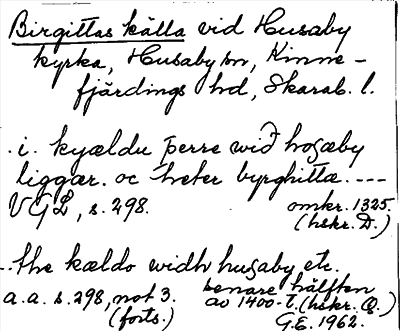 Birgittas källa vid Husaby
kyrka, Husaby sn, Kinne-
fjärdings hd, Skarab. l.
.i. kyældu þerre wið hosæby
liggær. oc heter byrghittæ. ---
VGL, s. 298. omkr. 1325.
(hskr. D.)
..the kældo widh husaby etc.
a.a. s. 298, not 3. senare hälften
av 1400-t. (hskr. Q.)
(forts.) G.E. 1962.